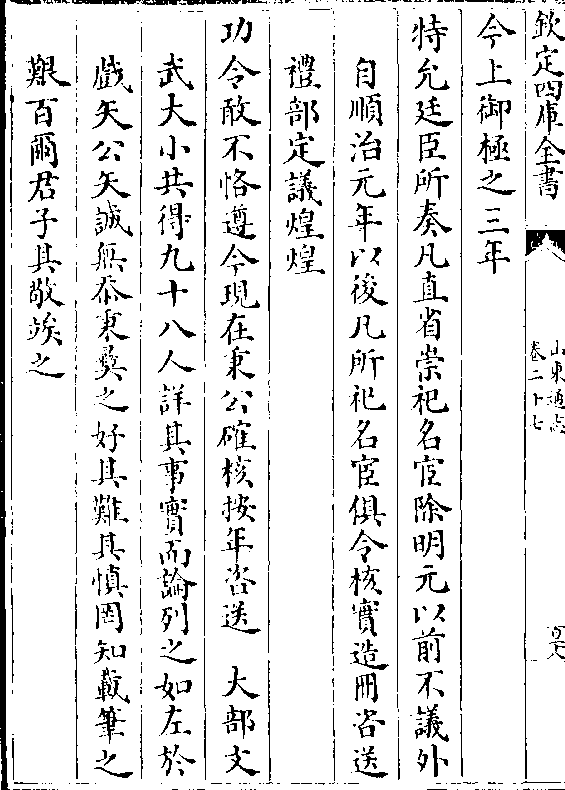 欽定四庫全書
山東通志
卷二十七
今上御極之三年
特允廷臣所奏凡直省崇祀名宦除明元以前不議外
自順治元年以後凡所祀名宦俱令核實造冊咨送
禮部定議煌煌
功令敢不恪遵今現在秉公確核按年咨送　大部文
武大小共得九十八人詳其事實而論列之如左於
戲矢公矢誠無忝秉彛之好其難其慎罔知載筆之
艱百爾君子其敬俟之